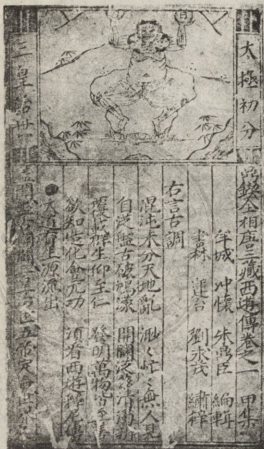 太極初分
三皇治世
鼎鍥全相唐三藏西遊傳卷之一 甲集
羊城 冲懷 朱鼎臣 編輯
書林 蓮台 劉求茂 繡梓
混沌未分天地亂 渺々茫々無人見
自從盤古破鴻濛 開闢從茲清濁辨
覆載群生仰至仁 發明萬物皆至善
欲知造化會元功 須看西遊釋尼傳
源流出